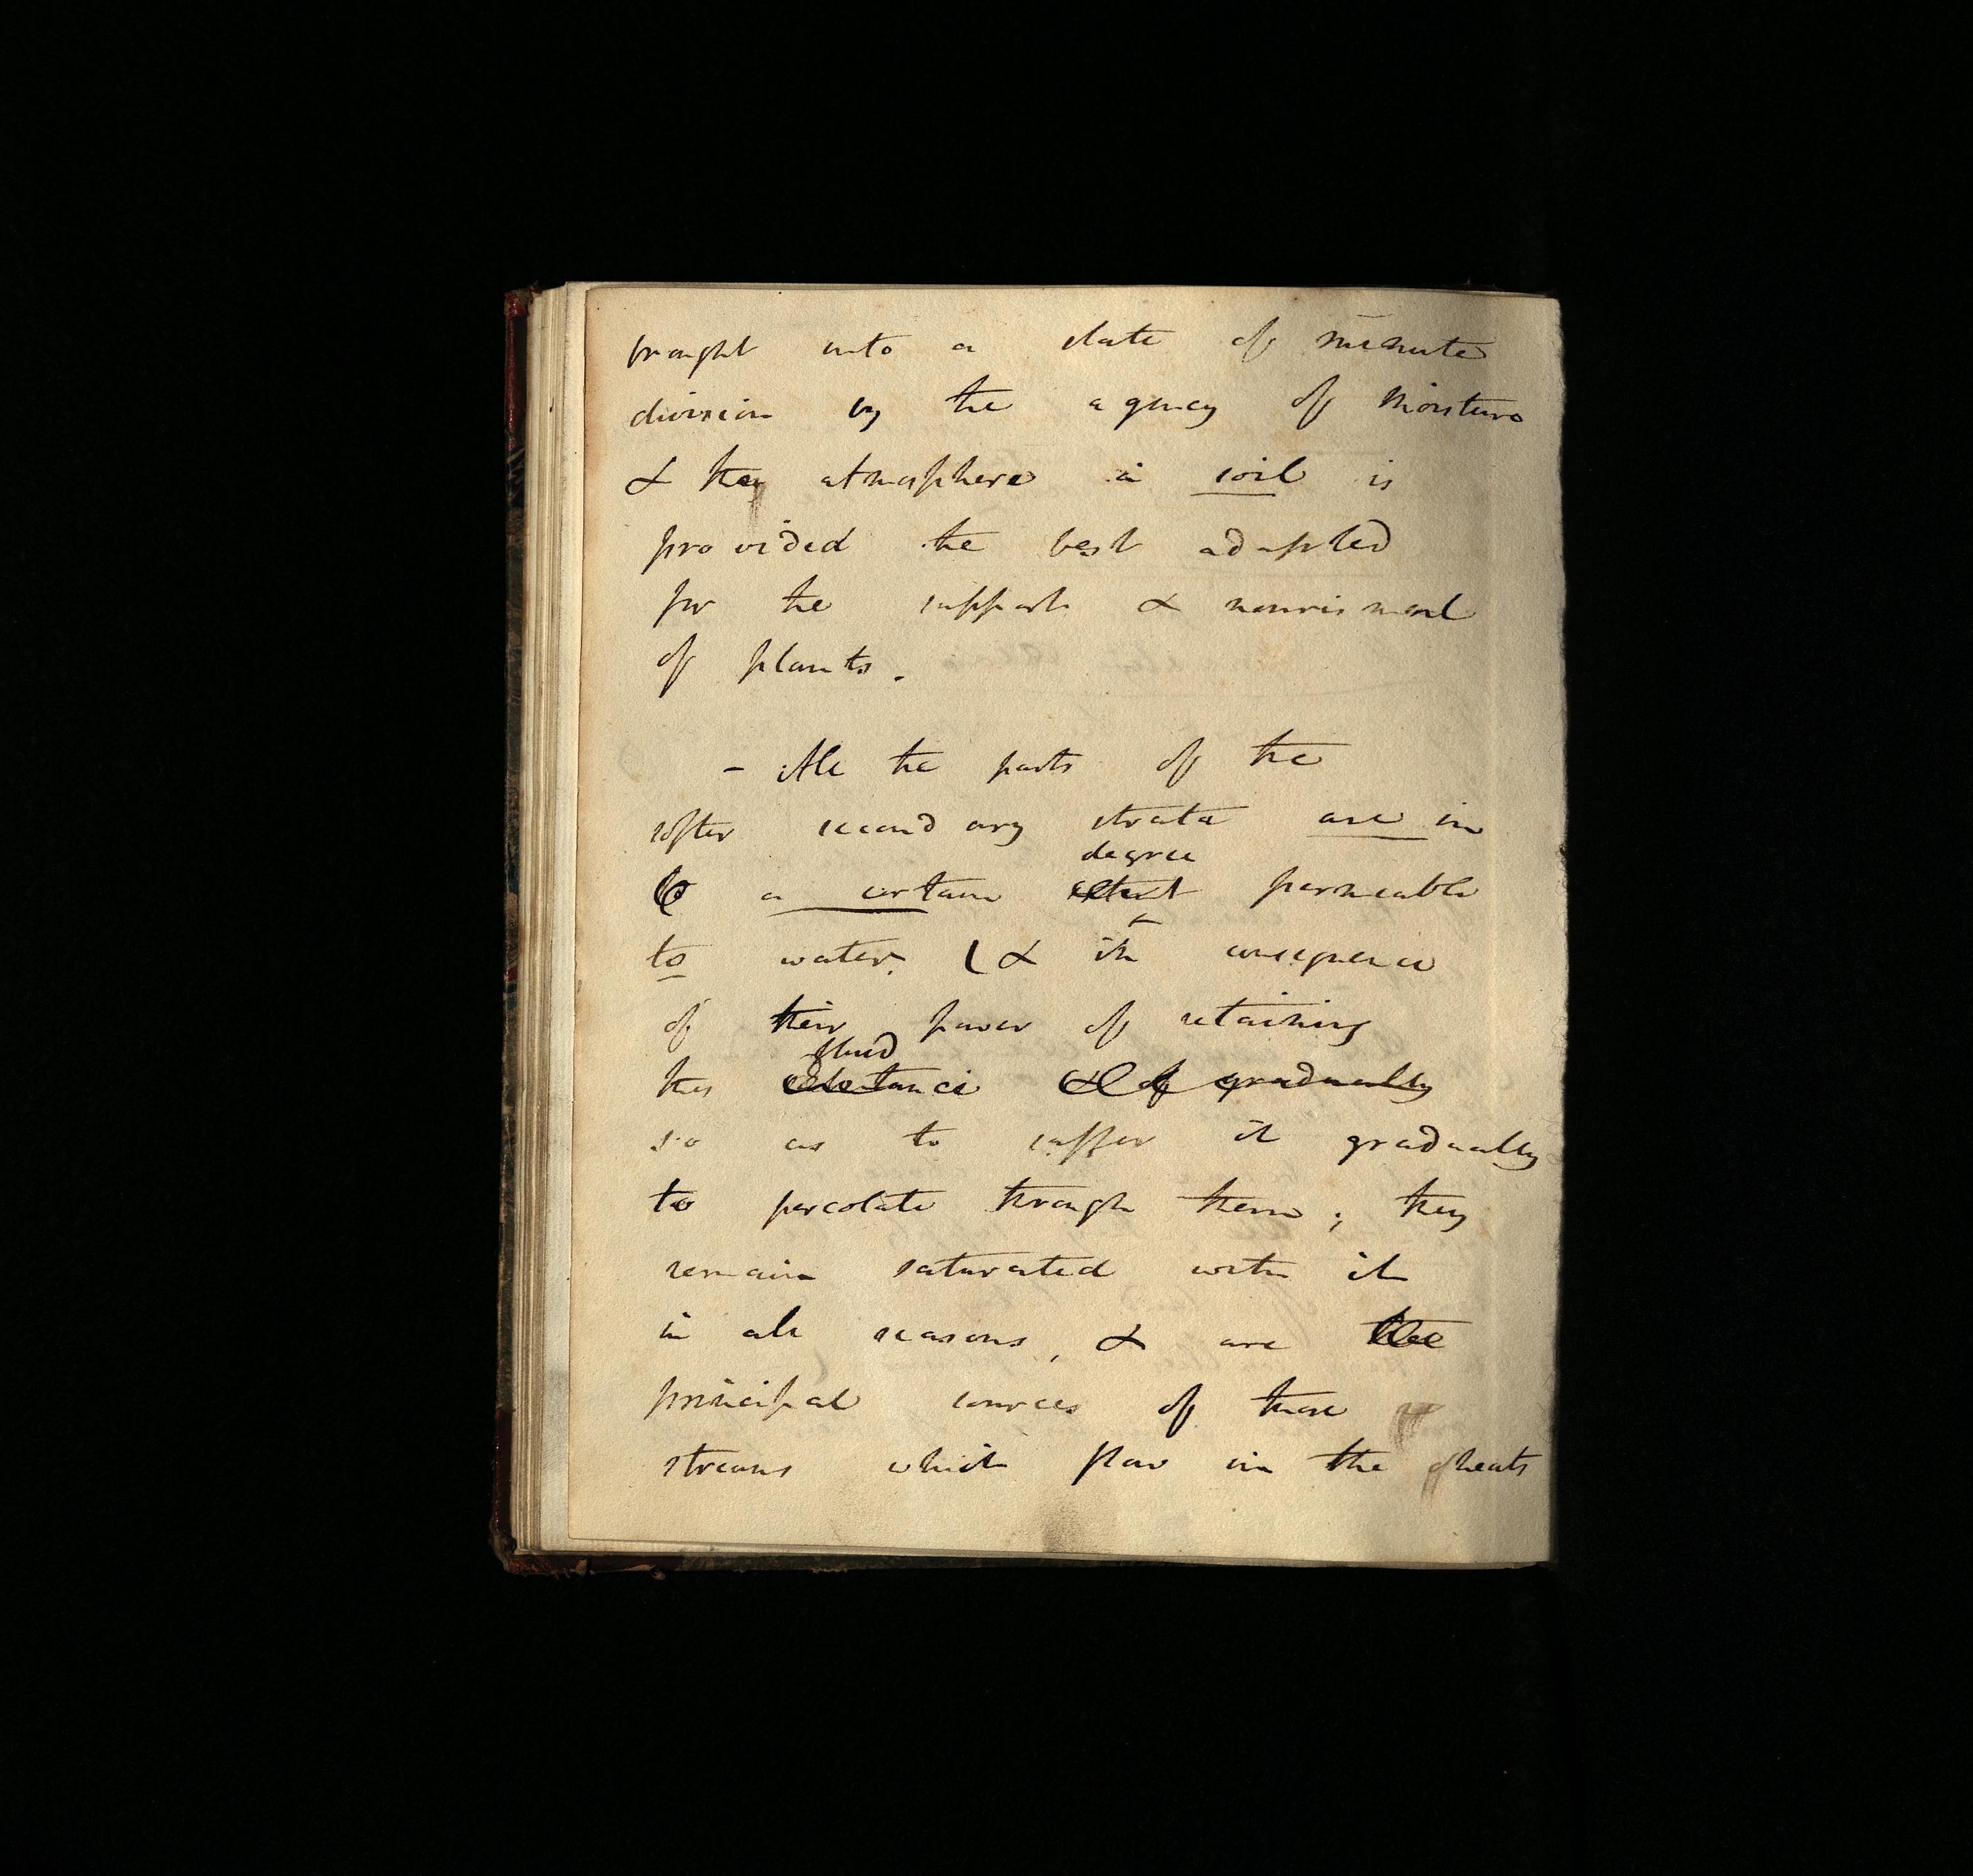 brought into a state of minute
division by the agency of moisture
& the atmosphere a soil is
provided the best adapted
for the support & nourisment
of plants.
- All the parts of the
softer secondary strata are in
degree
a certain extent permeable
to water, (& in consequence
of their power of retaining
fluid
this substance & of gradually
so as to suffer it gradually
to percolate through them; they
remain saturated with it
in all seasons, & are the
principal sources of those
streams which flow in the